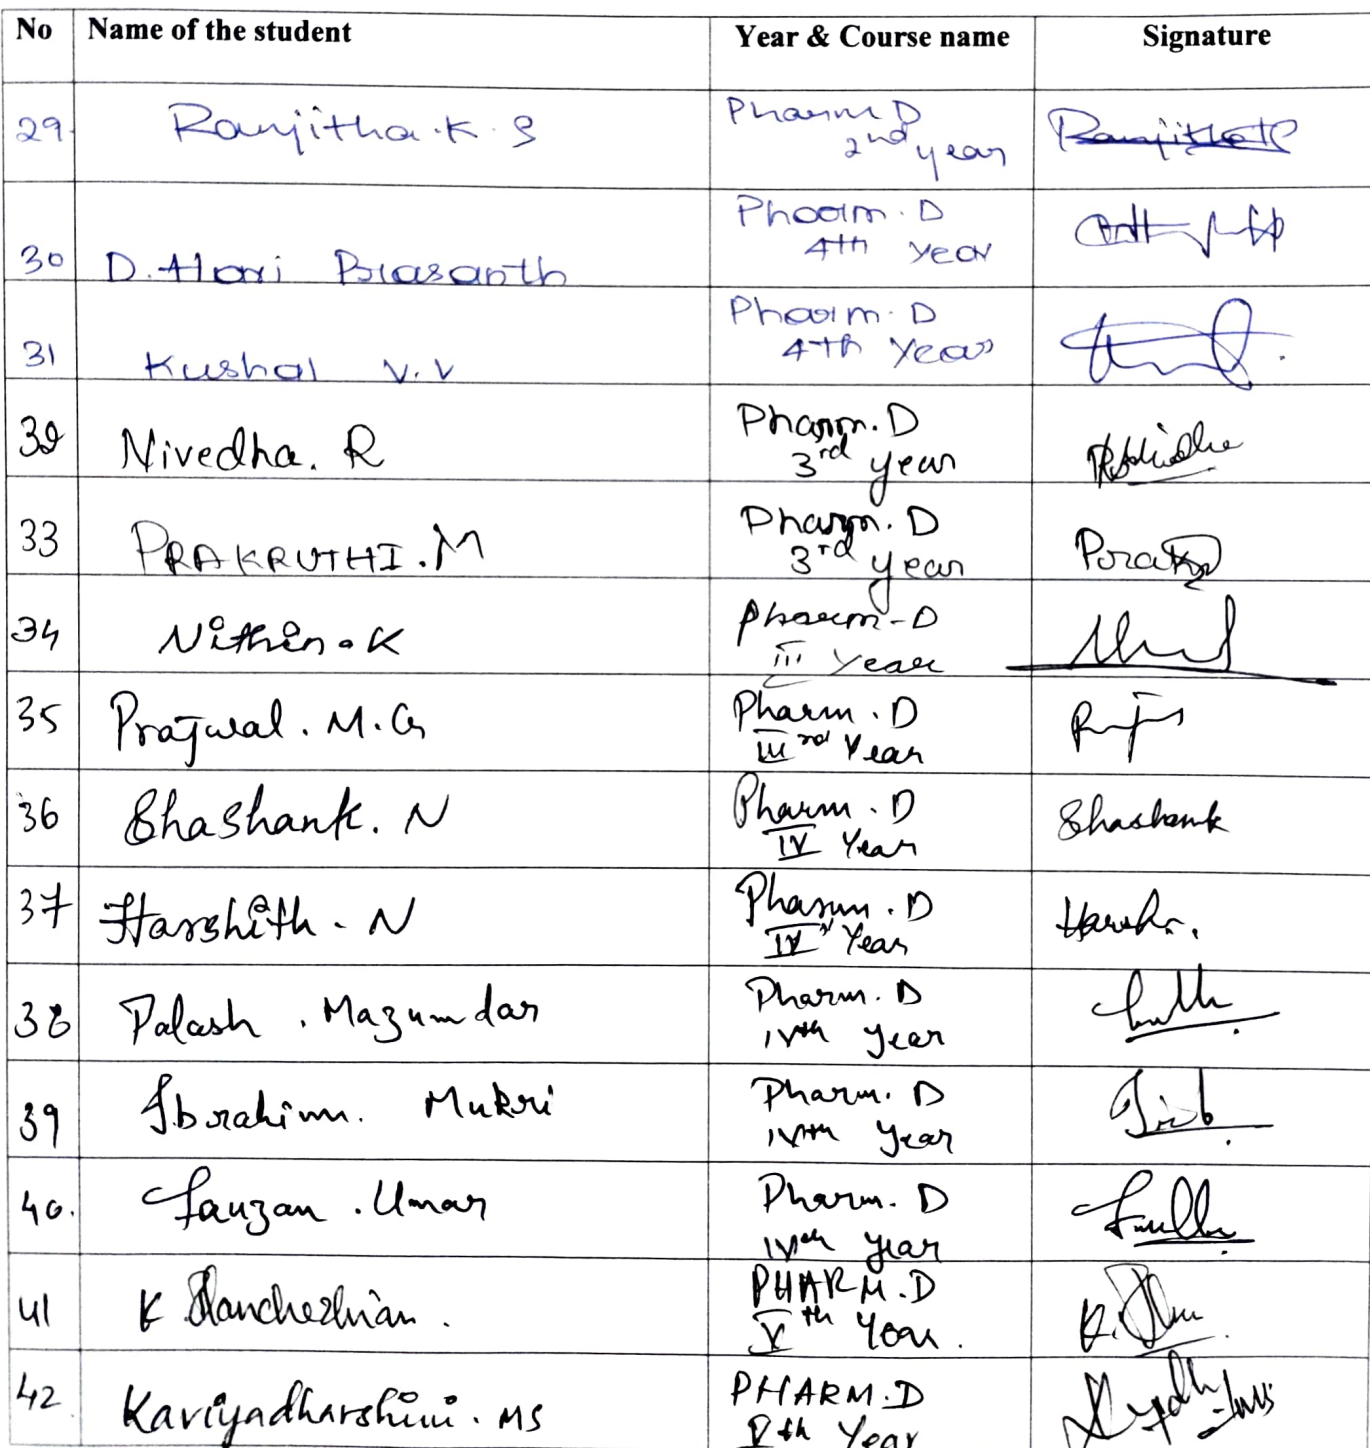 No Name of the student Year & Course name Signature
29. Ranjitha.K.S Pharm D
2nd year
30 D. Hari Prasanth Pharm.D
4th year
31 Kushal V.V Pharm.D
4th Year
32 Nivedha. R Pharm.D
3rd year
33 PRAKRUTHI.M Pharm.D
3rd year
34 Nithin.K Pharm-D
III Year
35 Prajwal.M.G Pharm.D
IIIrd Year
36 Shashank. N Pharm.D Shashank
IV Year
37 Harshith. N Pharm.D
IV Year
38 Palash . Mazumdar Pharm.D
IVth Year
39 Ibrahim. Mukri Pharm.D
IVth Year
40. Fauzan .Umar Pharm.D
IVth year
41 K Elanchezhian . PHARM.D
Vth Year.
42 Kaviyadharshini. MS PHARM.D
Vth Year